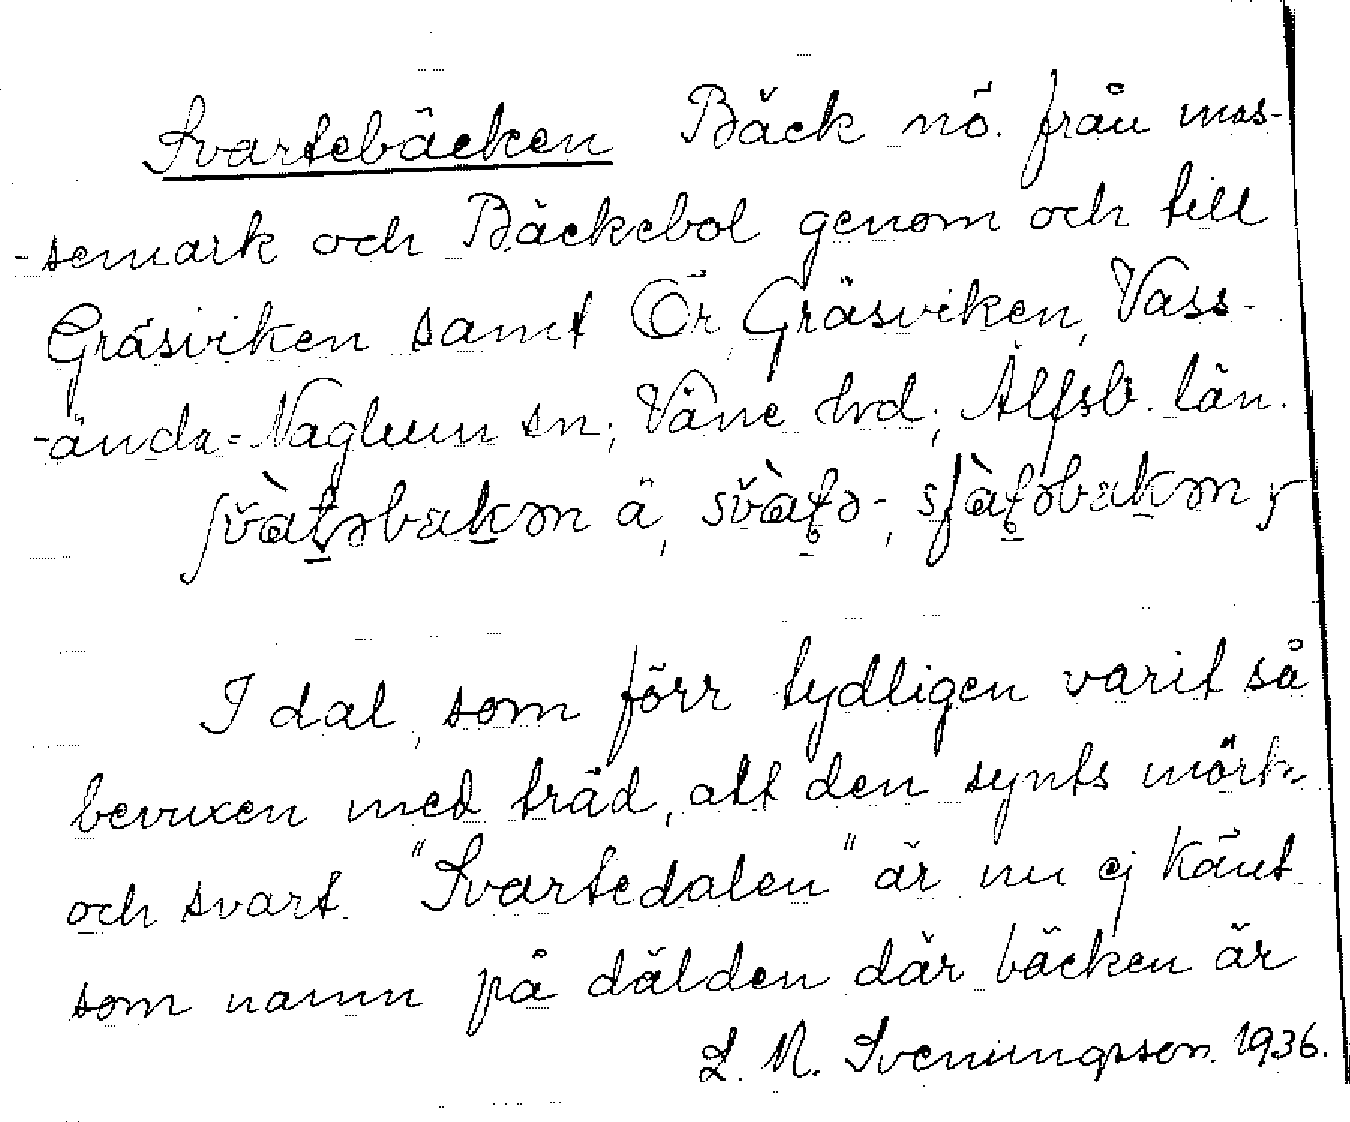 Svartebäcken Bäck nö. från mos-
-semark och Bäckebol genom och till
Gräsviken samt Ör, Gräsviken, Vass-
-ända-Naglum sn; Väne hrd; Älfsb. län.
ʃv̌àt̯əbakən ä, sv̌àt̯ə-, sfàt̯əbakən
I dal, som förr tydligen varit så
bevuxen med träd, att den synts mörk
och svart. "Svartedalen" är nu ej känt
som namn på dälden där bäcken är
L. M. Svenungsson. 1936.